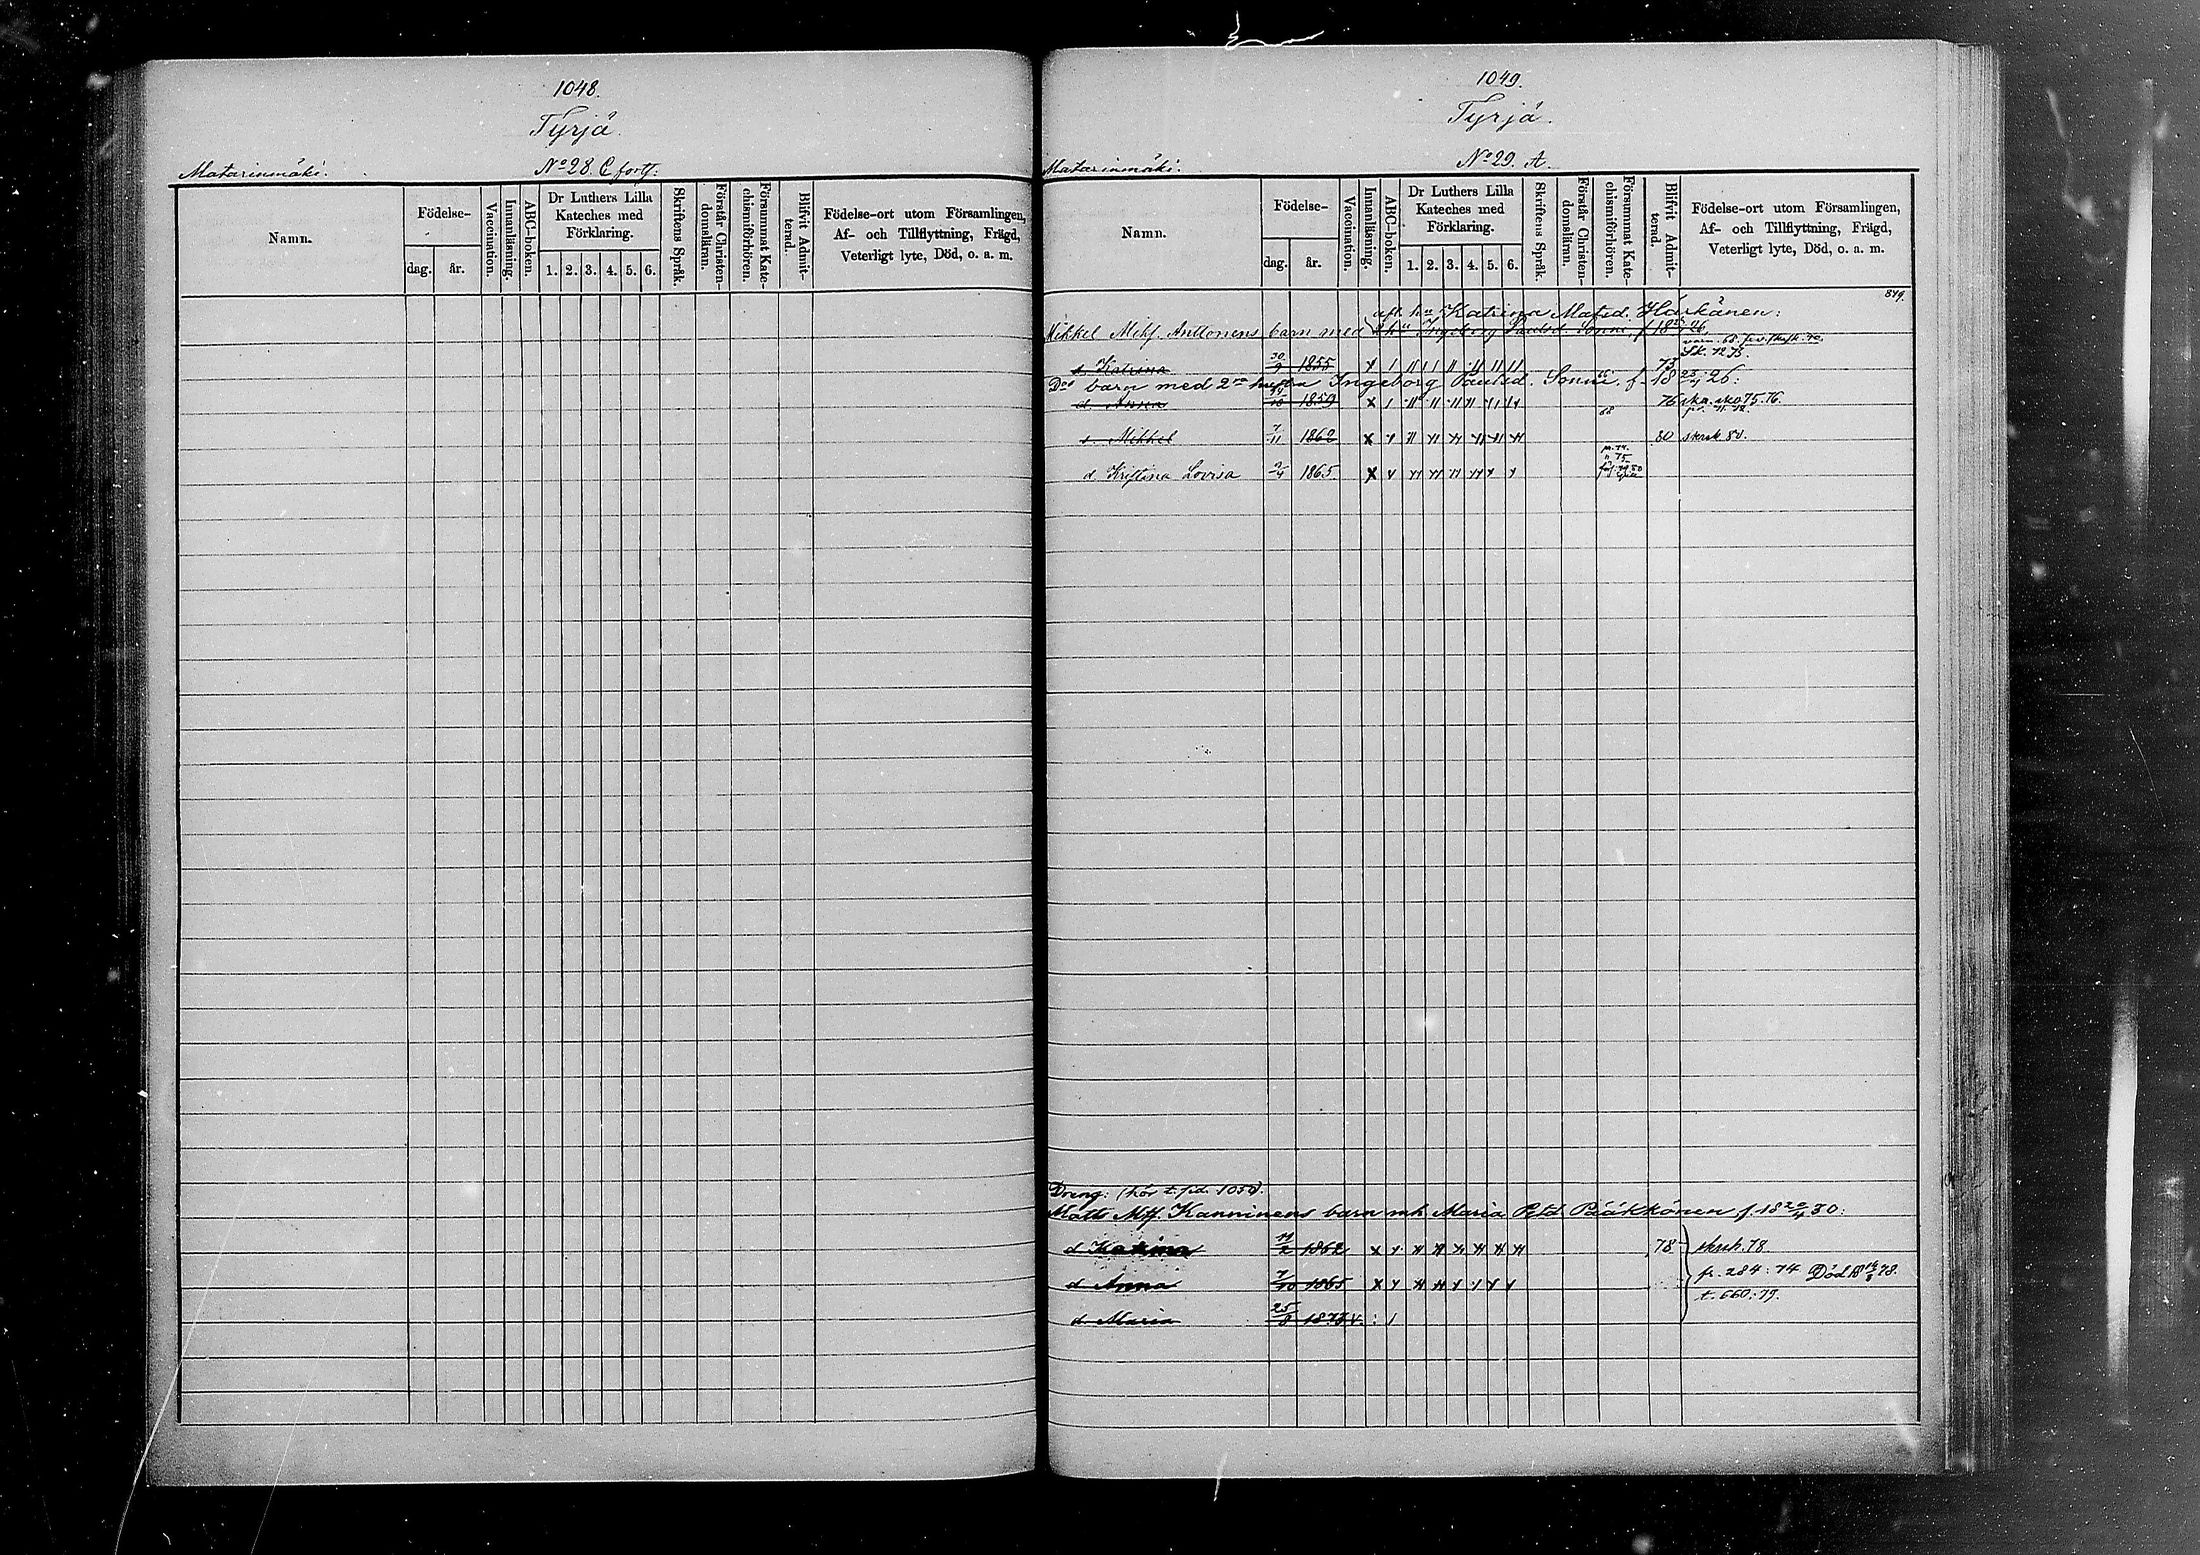 1048.
Tyrjä.
Matarinmäki. No 28. C forts:
Namn.
Födelse-
dag. år.
Vaccination.
Innanläsning.
ABC-boken.
Dr Luthers Lilla Kateches med Förklaring.
1. 2. 3. 4. 5. 6.
Skriftens Språk.
Förstår Christen-domsläran.
Försummat Kate-chismiförhören.
Blifvit Admit-terad.
Födelse-ort utom Församlingen,
Af- och Tillflyttning, Frägd,
Veterligt lyte, Död, o. a. m.
1049.
Tyrjä.
Matarinmäki. No 29. A.
Namn.
Födelse-
dag. år.
Vaccination.
Innanläsning.
ABC-boken.
Dr Luthers Lilla Kateches med Förklaring.
1. 2. 3. 4. 5. 6.
Skriftens Språk.
Förstår Christen-domsläran.
Försummat Kate-chismiförhören.
Blifvit Admit-terad.
Födelse-ort utom Församlingen,
Af- och Tillflyttning, Frägd,
Veterligt lyte, Död, o. a. m.
879.
afl. hu Katrina Matsd. Härkänen:
Mikkel Mikf. Anttonens barn med Ingeborg Paulsd Sonni, f 18 26.
s. Katrina 30/9 1855 73 Sk. 1273.
Do barn med 2ra hustru Ingeborg Paulsd. Sonni. f. 18 23/4 26:
d Anna 24/10 1859 68 76 75.76.
s. Mikkel 7/11 1862 80 skrsk 80.
d Kristina Lovisa 2/4 1865
Dreng: (hör t. sid. 1050).
Matts Mtf. Kanninens barn mh Maria Petd. Pääkkönen f. 18 20/4 30:
d Katrina 11/2 1862 78 skrsk. 78.
d Anna 7/10 1865 fr. 284:74 Död 78.
d Maria 25/8 1873 v. t. 660:79.